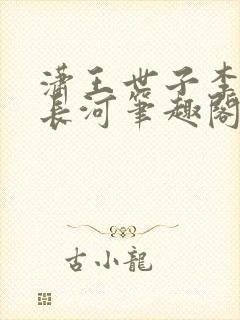 潇王世子李
长河笔趣阁
古小龍